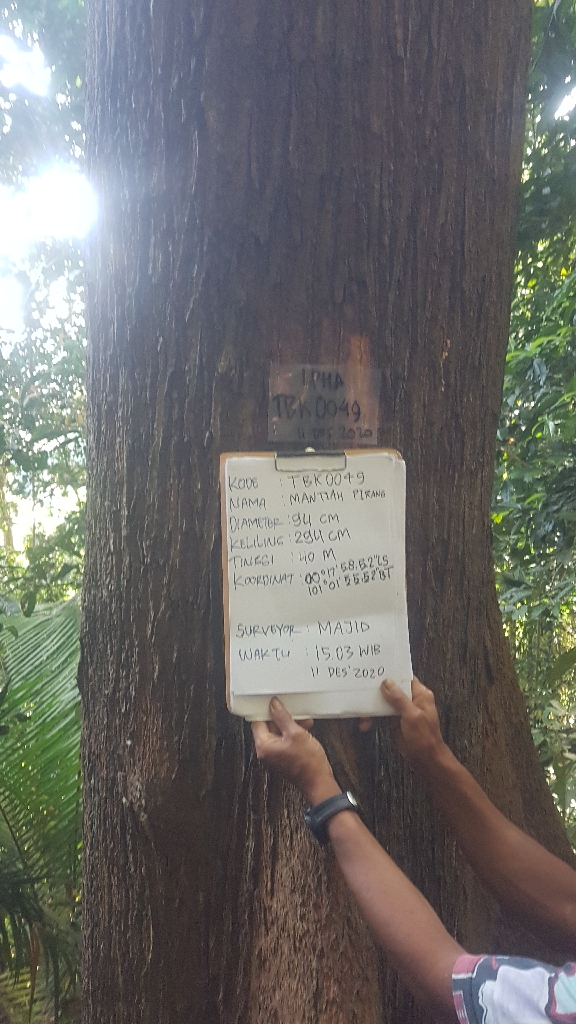 LPHA
TBK0049
11 DES 2020
KODE : TBK0049
NAMA : MANTIAH PIRANG
DIAMETER : 94 CM
KELILING : 294 CM
TINGGI : 40 M
KOORDINAT : 00°17'58.52"LS
101°01'55.52"BT
SURVEYOR : MAJID
WAKTU : 15.03 WIB
11 DES' 2020